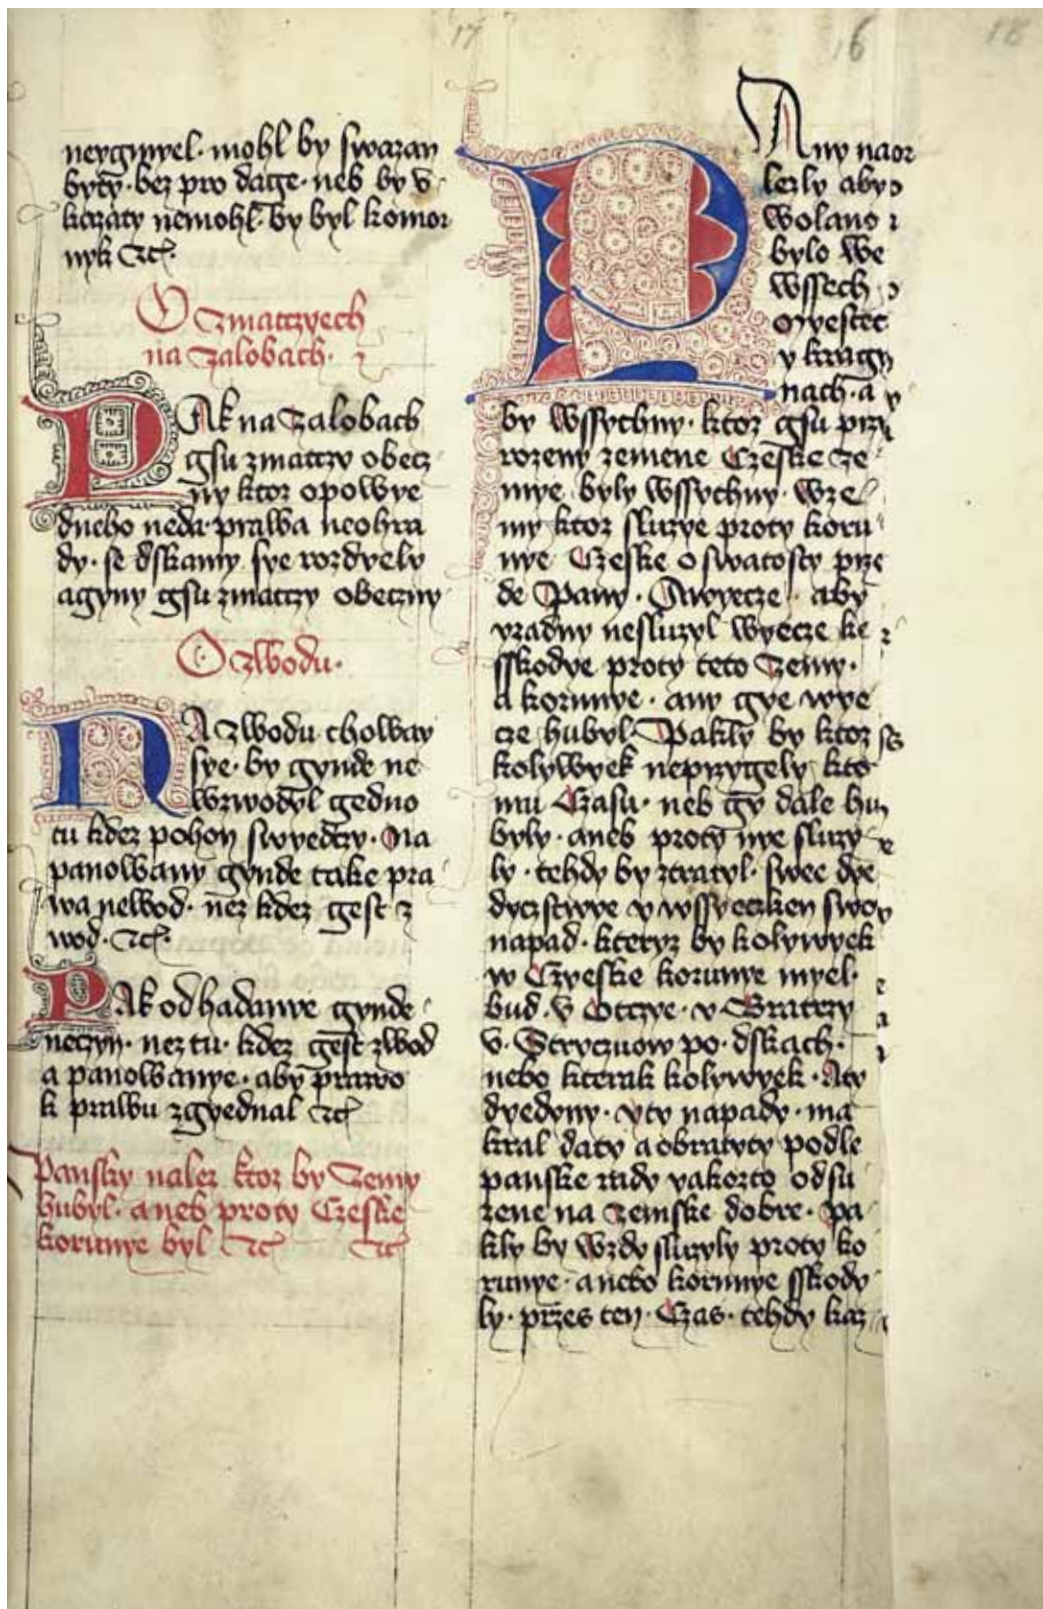 17
16
18
neygmyel · mohl by swazan
byty · bez pro dage · neb by v
kazaty nemohl · by byl komor
nyk etc ·
O zmatczyech
na zalobach ·
PAk na zalobach
gsu zmatczy obecz
ny ktoz opowye
dneho neda · prawa neohra
dy · se dskamy sye rozdyely
a gyny gsu zmatczy obeczny
O zwodu ·
NA zwodu chowaty
sye · by gynde ne
wzwodyl gedno
tu kdez pohon swyedczy · Na
panowany gynde take pra
wa newod · nez kdez gest z
wod · etc ·
PAk odhadanye gynde
neczyn · nez tu · kdez gest zwod
a panowanye · aby prawo
k prawu zgyednal etc
Pansky nalez ktoz by Zemy
hubyl · aneb proty Czeske
korunye byl etc etc
PAny naz
lezly aby
wolano
bylo we
wssech
Myestec
y kragy
nach · a
by wssychny · ktoz gsu przy
rozeny zemene Czeske ze
mye byly wssychny · wze
ny ktoz sluzye proty koru
nye Czeske o swatosty prze
de Pany · A wyecze · aby
vzadny nesluzyl wyecze ke
sskodye proty teto Zemy ·
a korunye · any gye wye
cze hubyl · Pakly by ktoz
kolywyek neprzygely k to
mu Czasu · neb gy dale hu
byly · aneb proty nye sluzy
ly · tehdy by ztratyl · swee dye
dyczstwye y wssyeczken swoy
napad · kteryz by kolywyek
w Czyeske korunye myel ·
bud · v Otczye · v Bratrzy
v · Stryczuow po · dskach ·
nebo kterak kolywyek · A ty
dyedyny · y ty napady · ma
kral daty a obratyty podle
panske rady yakozto odsu
zene na zemske dobre · Pa
kly by wzdy sluzyly proty ko
runye · anebo korunye sskody
ly · przes ten · Czas · tehdy kaz